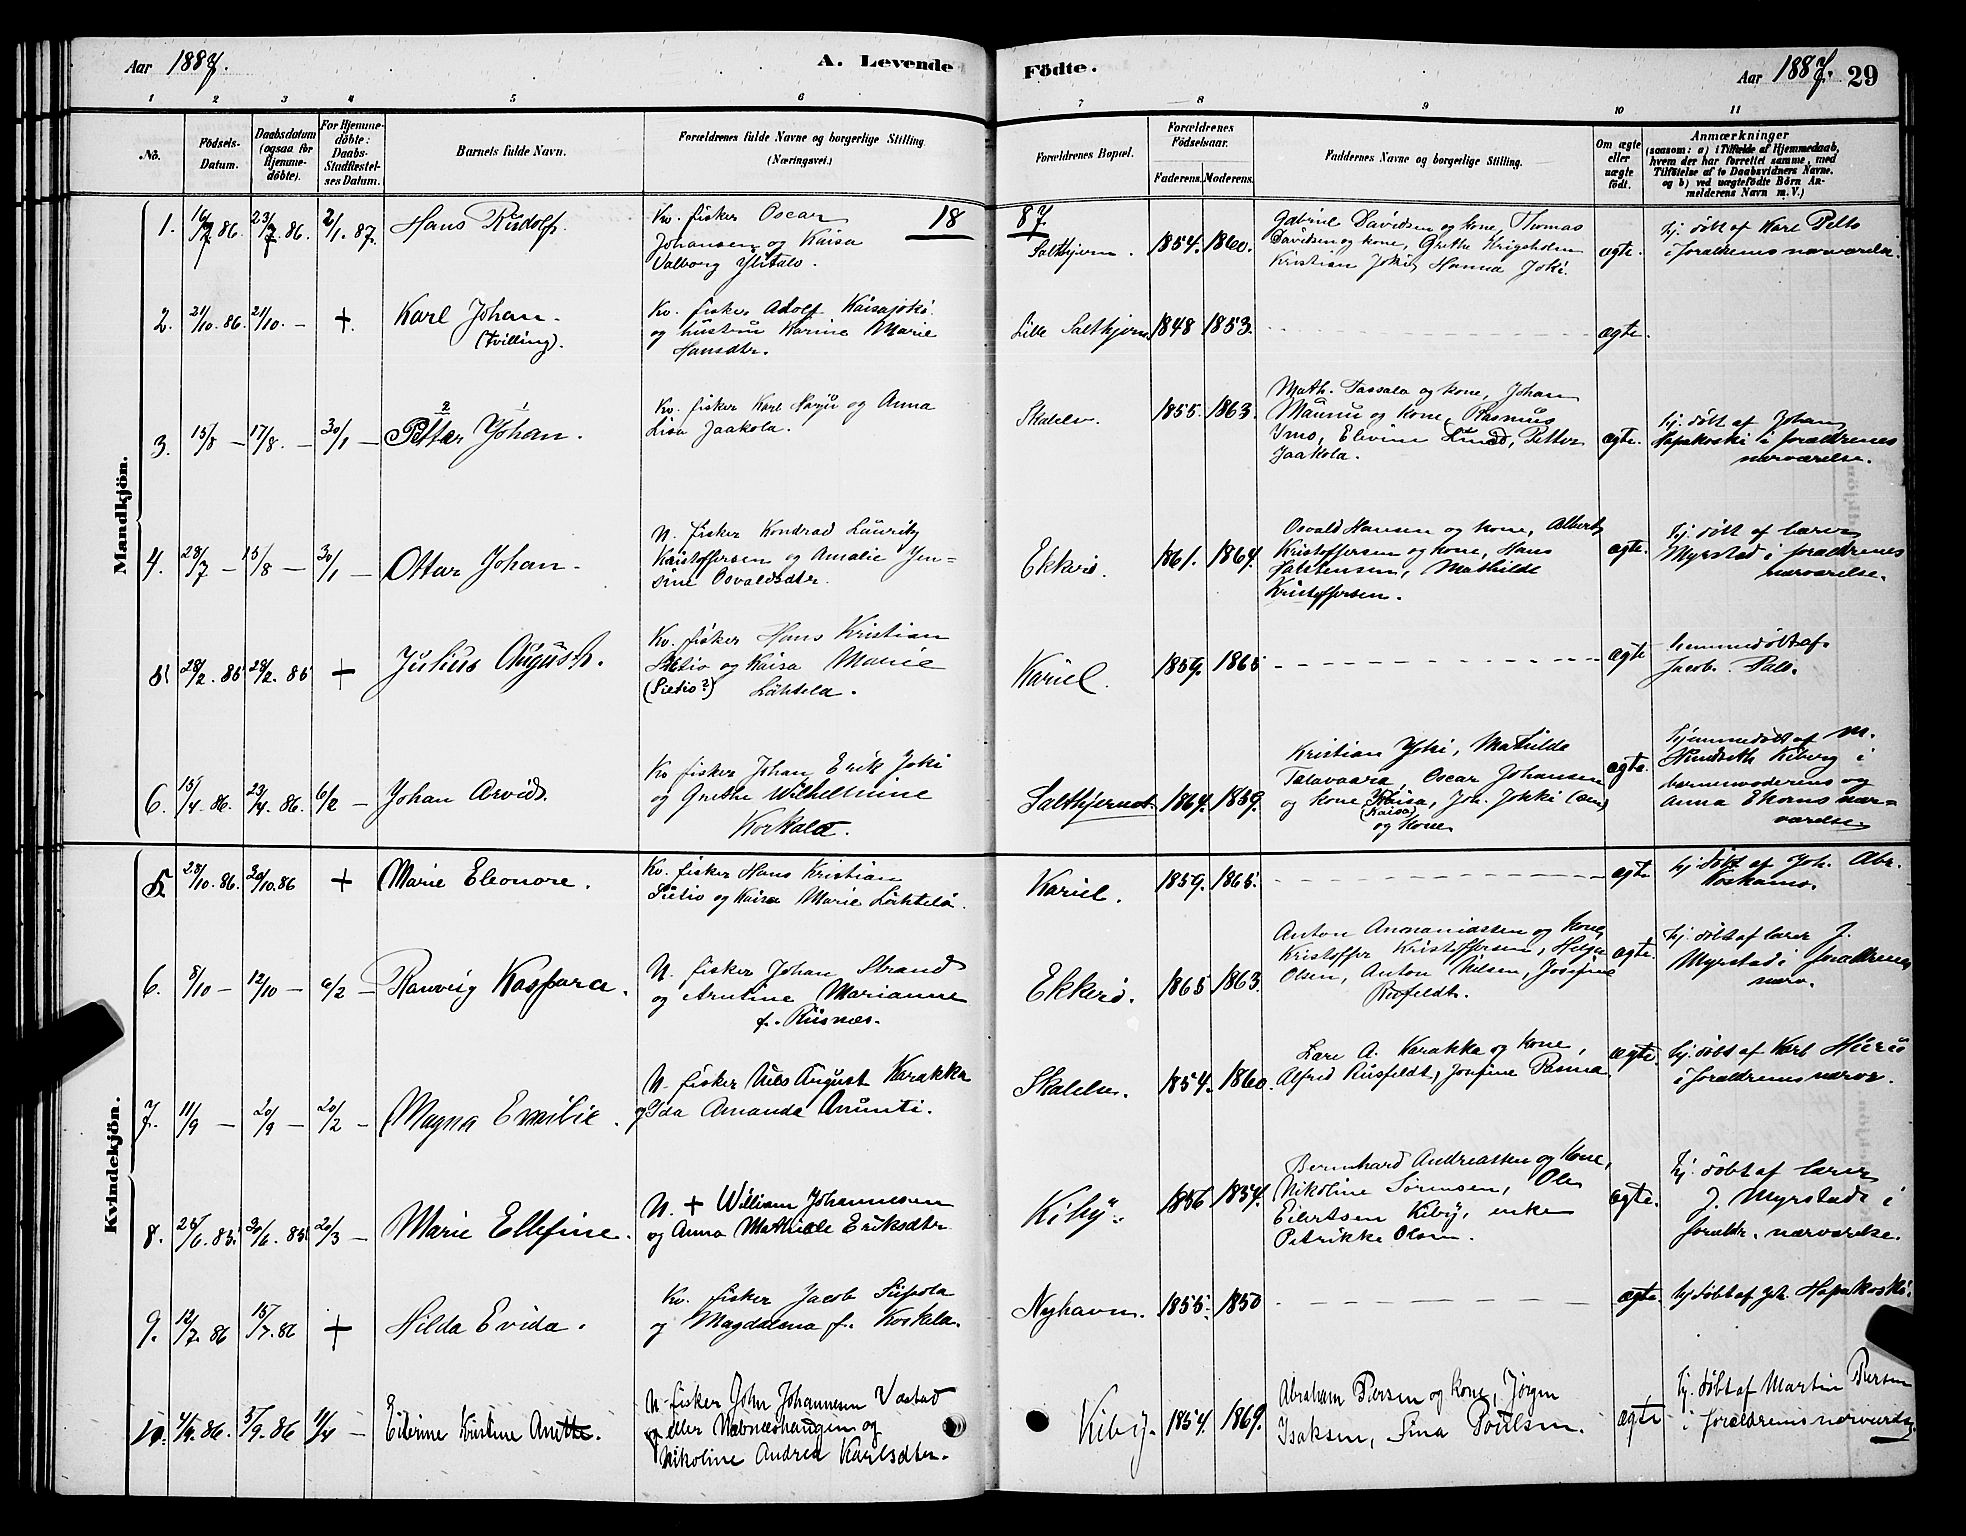 Aar 1887.
A. Levende
Födte.
Aar 1887. 29
1 2 3 4 5 6 7 8 9 10 11
No.
Födsels-
Datum.
Daabsdatum
(ogsaa for
Hjemme-
döbte).
For Hjemme-
döbte:
Daabs-
Stadfæstel-
ses Datum.
Barnets fulde Navn.
Forældrenes fulde Navne og borgerlige Stilling
(Næringsvei.)
Forældrenes Bopæl.
Forældrenes
Födselsaar.
Faderens. Moderens.
Faddernes Navne og borgerlige Stilling.
Om ægte
eller
uægte
födt.
Anmærkninger
(saasom: a) i Tilfælde af Hjemmedaab,
hvem der har forrettet samme, med
Tilföielse af to Daabsvidners Navne.
og b) ved uægtefödte Börn An-
melderens Navn m. V.)
18 87.
Mandkjön.
1. 16/7 86. 23/7 86. 2/1. 87. Hans Rudolf.
Kv. fisker Oscar
Johansen og Kaisa
Valborg Ylitalo.
Salthjern. 1854. 1860.
Gabriel Davidsen og kone, Thomas
Davidsen og kone, Grethe
Kristian Joki, Hanna Joki.
ægte.
hj. døbt af Karl Pelto
i foraldrenes nærværelse.
2. 21/10. 86. 21/10. – + Karl Johan.
(tvilling).
Kv. fisker Adolf Kaisajoki
og hustru Karine Marie
Hansdtr.
Lille Salthjern 1848 1853.
ægte.
3. 15/8 – 17/8. – 30/1 – Petter Johan.
2 1
Kv. fisker Karl og Anna
Lisa Jaakola.
Skalelv. 1855. 1863.
Math. Tassala og kone, Johan
Maunu og kone, Rasmus
Imo, Elevine Petter
Jaakola.
ægte.
hj. døbt af Johan
Hapakoski i foraldrenes
nærværelse.
4. 28/7 – 15/8 – 30/1 – Ottar Johan.
N. fisker Kondrad Lauritz
Kristoffersen og Amalie Jen-
sine Osvaldsdtr.
Ekkerø. 1861. 1864.
Osvald Hansen og kone, Albert
Kristoffersen og kone, Hans
Mathilde
Kristoffersen.
ægte.
hj. døbt af lærer
Myrstad i foraldrenes
nærværelse.
5 28/2. 85 28/2. 85 + Julius August.
Kv. fisker Hans Kristian
og Kaisa Marie
(Sietio?) Lähtela.
Kariel. 1859. 1865
ægte
hemmedøbt af
Jacob Palo.
6. 15/4. 86. 23/4. 86. 6/2 – Johan Arvid.
Kv fisker Johan Erik Joki
og Grethe Wilhelmine
Korkala.
Salthjernet. 1864. 1859.
Kristian Joki, Mathilde
Talavaara, Oscar Johansen
og kone Kaisa, Joh. Jokki (sen)
(Kaisa)
og kone
ægte.
hjemmedøbt af M.
Kiberg i
barnemoderens og
Anna nær-
værelse.
Kvindekjön.
5. 28/10. 86. 30/10. 86 + Marie Eleonore.
Kv. fisker Hans Kristian
Sietio og Kaisa Marie Lähtela.
Kariel. 1859. 1865.
ægte
hj døbt af Joh. Abr.
Koskamo.
6. 8/10 – 12/10 – 6/2 – Ranveig Kaspara.
N. fisker Johan Strand
og Arntine Marianne
f. Rusnæs.
Ekkerø. 1865 1863.
Anton Annaniassen og kone,
Kristoffer Kristoffersen, Helga
Olsen, Anton Nilsen, Josefine
ægte.
hj. døbt af lærer J.
Myrstad i foraldrenes
nærv.
7. 11/9 – 20/9 – 20/2 – Magna Emilie.
N. fisker Nils August Karakka
og Ida Amanda Anunti.
Skalelv. 1854. 1860.
Lars A. Karakka og kone,
Alfred Rusfeldt, Josefine Panna
ægte.
hj. døbt af Karl
i foraldrenes nærv.
8. 25/6 85. 30/6. 85 20/3 – Marie Ellefine.
N. + William Johannesen
og Anna Mathilde Eriksdtr
Kiby. 1856 1854.
Bernhard Andreassen og kone,
Nikoline Sørensen, Ole
Eilertsen Kiby, enke
Petrikke Olsen.
ægte.
hj. døbt af lærer
J. Myrstad i
foraldr. nærværelse.
9. 12/7. 86 15/7. 86 + Hilda Evida.
Kv. fisker Jacob Siipola
og Magdalena f. Koskela.
Nyhavn. 1855. 1850
ægte.
hj døbt af Joh. Hapakoski.
10. 4/9. 86. 5/9. 86 11/4 – Eilerine Kristine Anette.
N. fisker John Johannesen Vastad
eller og
Nikoline Andrea Karlsdtr.
Kiby. 1854. 1869.
Abraham Persen og kone, Jørgen
Isaksen, Sina Poulsen.
ægte
hj. døbt af Martin Persen
i foraldrenes